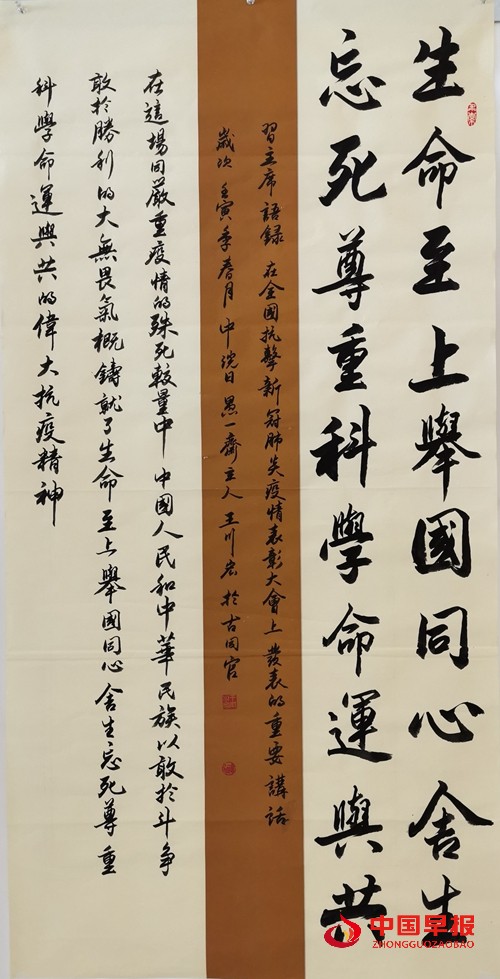 生命至上舉國同心舍生
忘死尊重科學命運與共
習主席語錄 在全國抗擊新冠肺炎疫情表彰大會上發表的重要講話
歲次壬寅季春月中浣日愚一齋主人王川宏於古同官
在這場同嚴重疫情的殊死較量中中國人民和中華民族以敢於斗争
敢於勝利的大無畏氣概鑄就了生命至上舉國同心舍生忘死尊重
科學命運與共的偉大抗疫精神
中国早报
ZHONGGUOZAOBAO